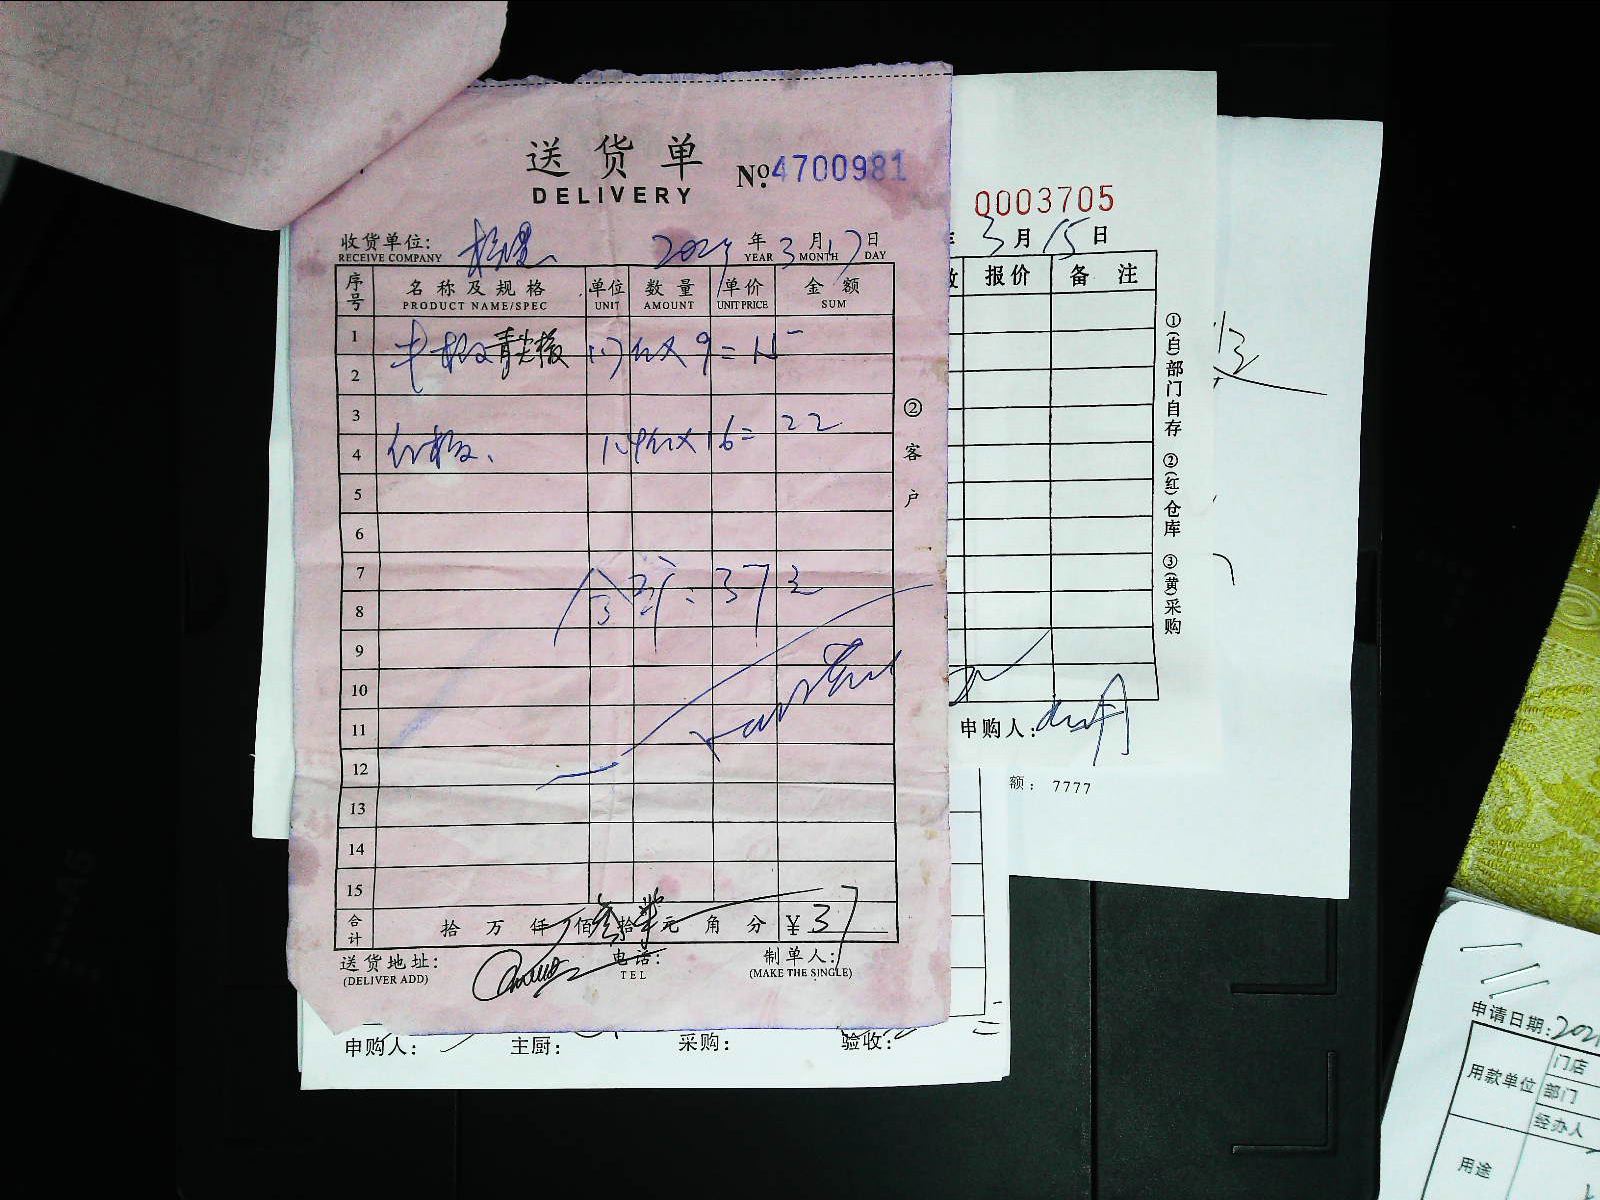 送货单
DELIVERY
No. 4700981
收货单位:
RECEIVE COMPANY
年 3 月 17 日
YEAR MONTH DAY
序号 名称及规格 单位 数量 单价 金额
PRODUCT NAME/SPEC UNIT AMOUNT UNIT PRICE SUM
1 青尖椒 1.7 × 9 = 15
2
3
4 红椒、 1.4 × 16 = 22
5
6
7
8 合计: 37元
9
10
11
12
13
14
15
合计 拾 万 仟 佰 叁拾柒元 角 分 ¥ 37
送货地址:
(DELIVER ADD)
电话:
TEL
制单人:
(MAKE THE SINGLE)
②客户
0003705
3月15日
报价 备注
①(白)部门自存 ②(红)仓库 ③(黄)采购
申购人:
额: 7777
申购人: 主厨: 采购: 验收:
申请日期: 202
用款单位
门店
部门
经办人
用途